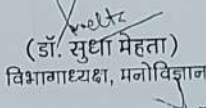 (डॉ. सुधा मेहता)
विभागाध्यक्षा, मनोविज्ञान